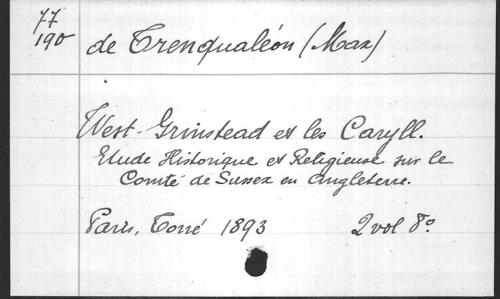 77
190
de Trenqualéon (Max)
West-Grinstead et les Caryll.
Etude Historique et Religieuse sur le
Comté de Sussex en Angleterre.
Paris, Torré 1893 2 vol 8°